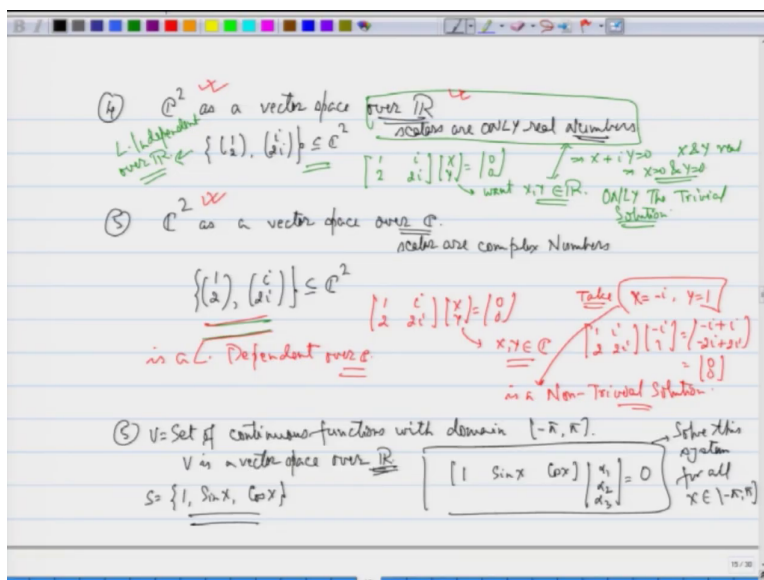 ④ ℂ² as a vector space over ℝ
scalars are ONLY real Numbers
L. Independent over ℝ. ← { (1 2), (i 2i) } ⊆ ℂ²
[1 i; 2 2i] [x; y] = [0; 0]
→ want x, y ∈ ℝ.
⇒ x + i y = 0 x & y real
⇒ x = 0 & y = 0
ONLY The Trivial Solution.
⑤ ℂ² as a vector space over ℂ.
scalar are complex Numbers
{ (1 2), (i 2i) } ⊆ ℂ²
is a L. Dependent over ℂ.
[1 i; 2 2i] [x; y] = [0; 0]
→ x, y ∈ ℂ
Take x = -i, y = 1
[1 i; 2 2i] [-i; 1] = (-i+i; -2i+2i)
= [0; 0]
is a Non-Trivial Solution.
⑤ V = Set of continuous functions with domain [-π, π].
V is a vector space over ℝ
S = {1, Sin x, Cos x}
[1 Sin x Cos x] [α₁; α₂; α₃] = 0
→ Solve this
system
for all
x ∈ [-π, π]
15 / 30